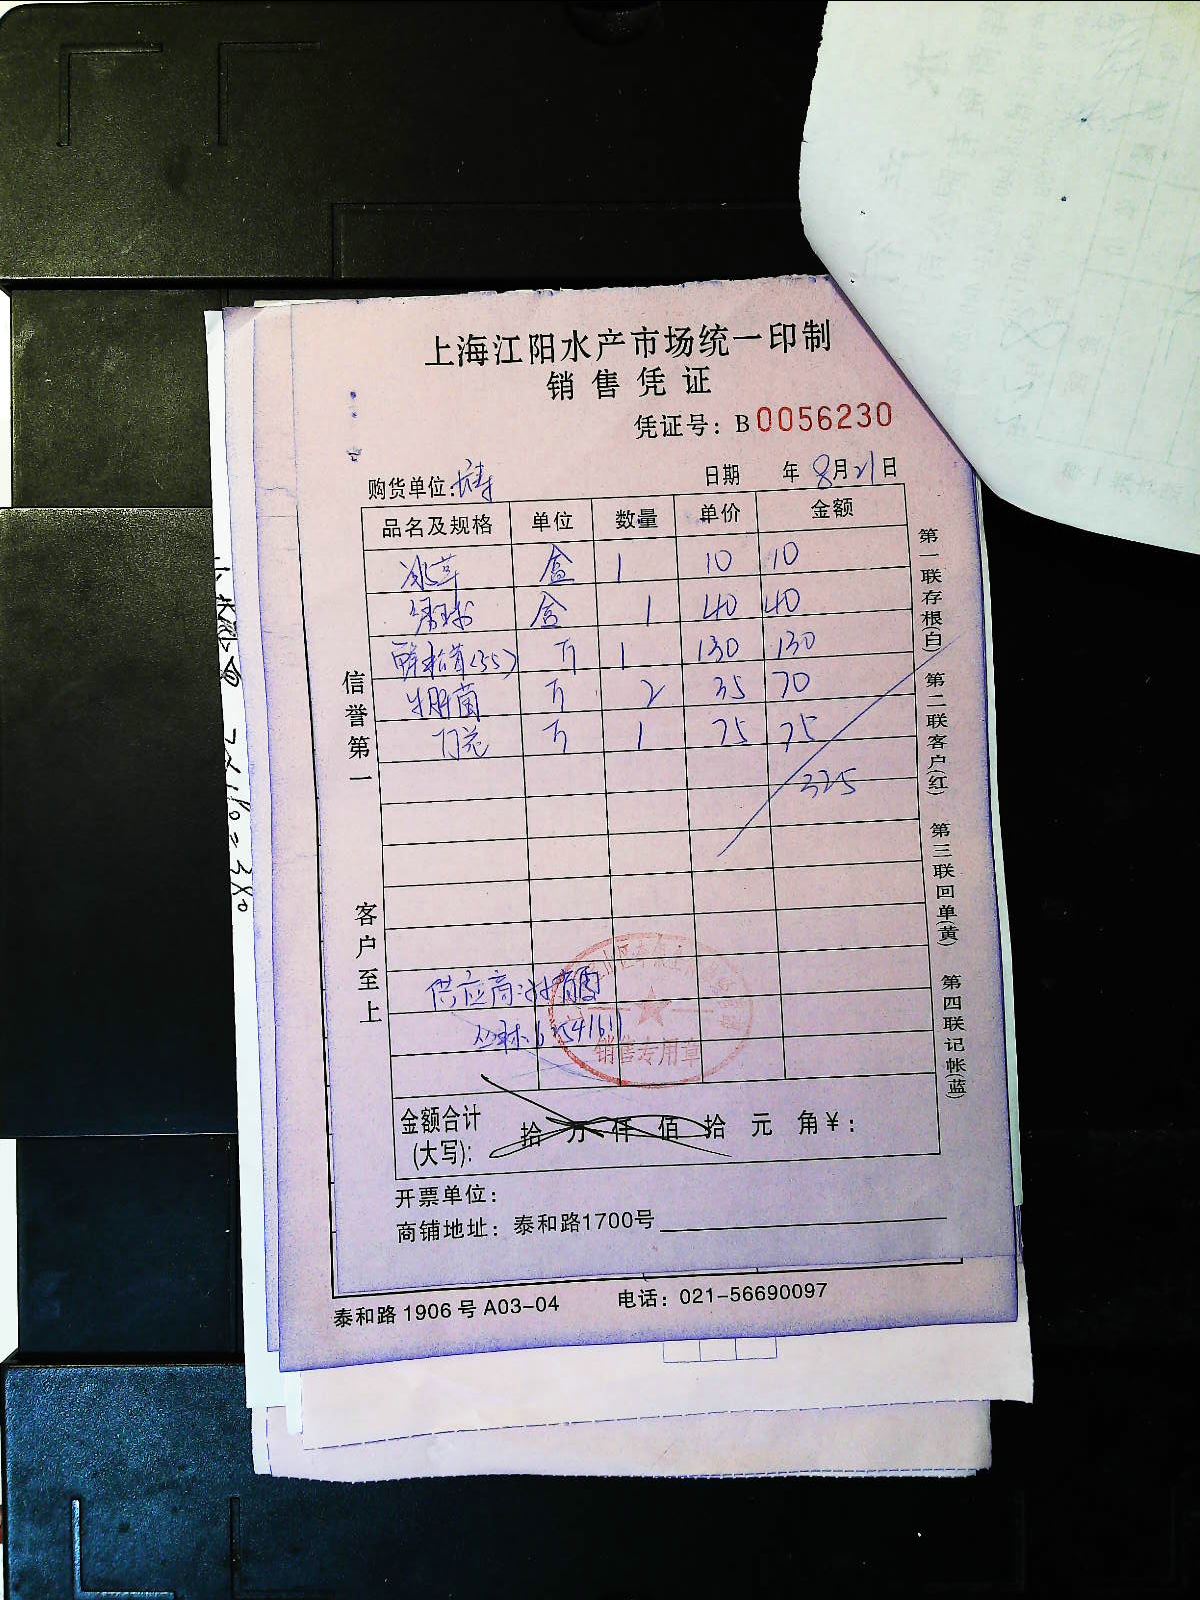 上海江阳水产市场统一印制
销售凭证
凭证号：B0056230
购货单位：
日期 年 8月21日
品名及规格 单位 数量 单价 金额
冰草 盒 1 10 10
盒 1 40 40
鲜松茸(55) 斤 1 130 130
牛肝菌 斤 2 35 70
斤 1 75 75
325
供应商：
销售专用章
金额合计
(大写): 拾 万 仟 佰 拾 元 角 ¥:
开票单位：
商铺地址：泰和路1700号
泰和路1906号A03-04 电话：021-56690097
信誉第一
客户至上
第一联存根(白) 第二联客户(红) 第三联回单(黄) 第四联记帐(蓝)